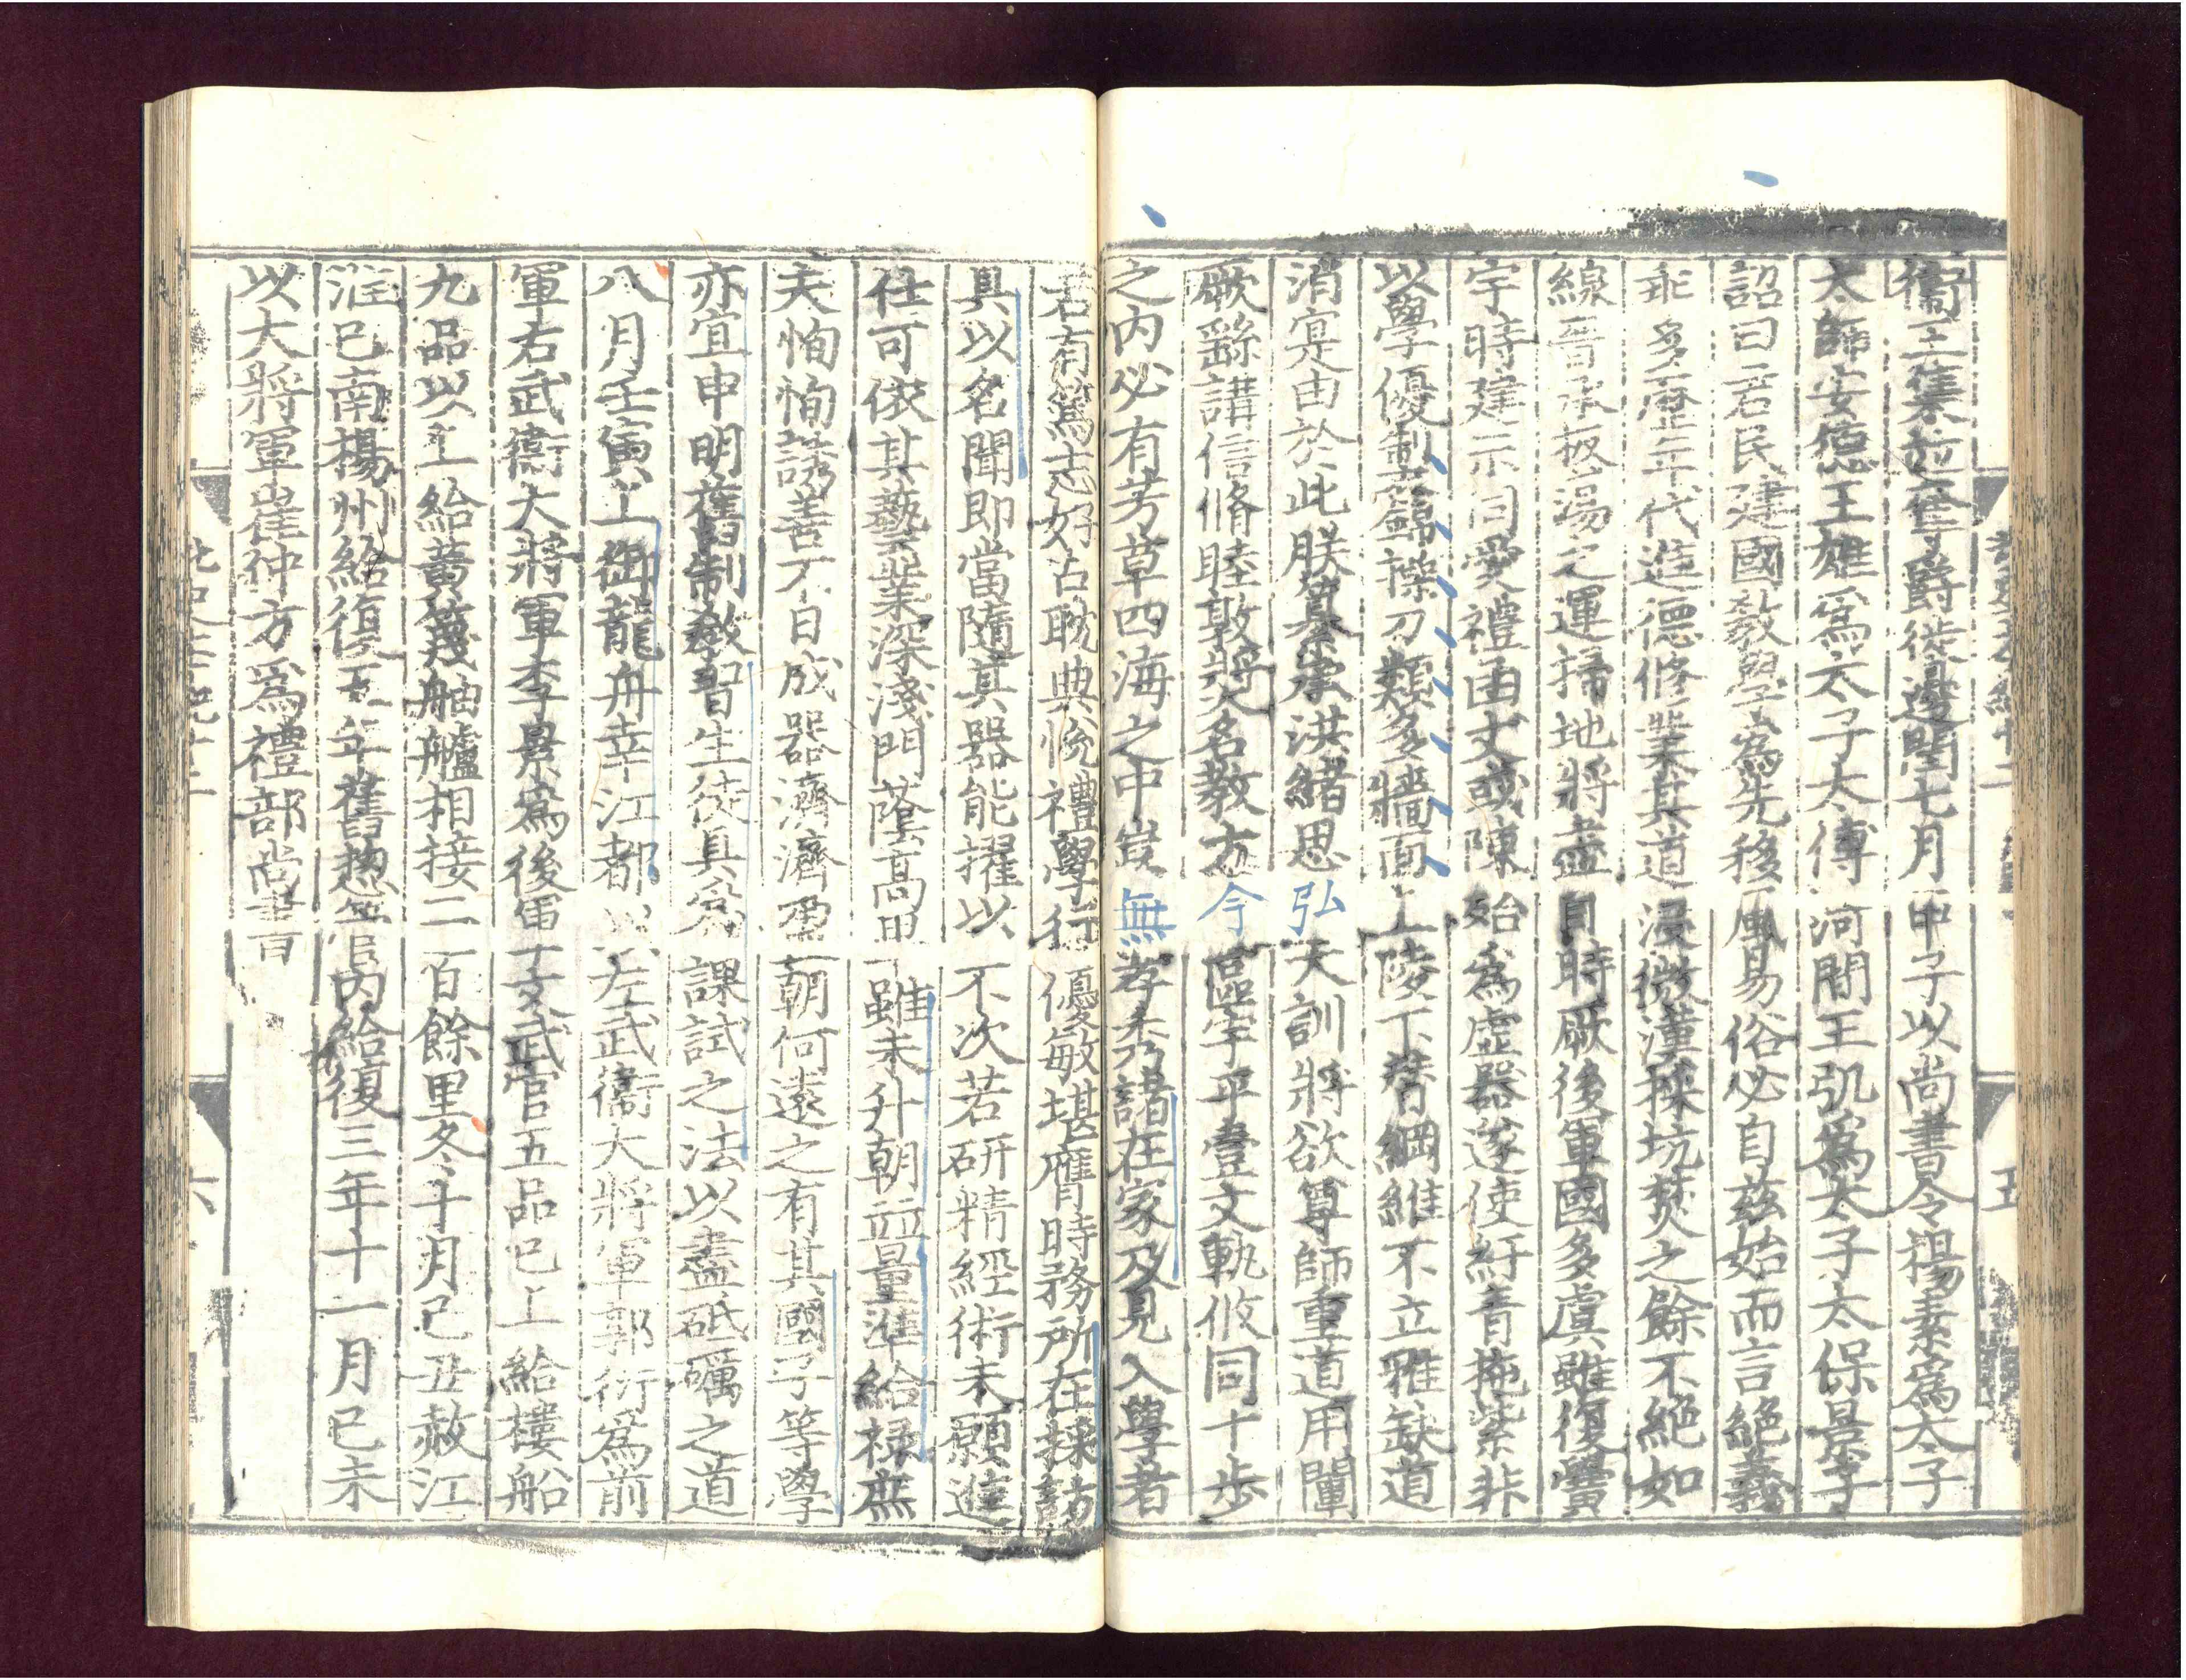 衞王集並奪爵徙邊閏七月甲子以尚書令楊素爲太子
太師安德王雄爲太子太傅河間王弘爲太子太保景子
詔曰君民建國敎學爲先移風易俗必自兹始而言絕義
乖多歷年代進德修業其道浸微漢採坑焚之餘不絕如
線晉承板蕩之運掃地將盡自時厥後軍國多虞雖復黌
宇時建示同愛禮函丈或陳殆爲虛器遂使紆青拖紫非
以學優制錦操刀類多牆面上陵下替綱維不立雅缺道
消寔由於此朕纂承洪緒思弘大訓將欲尊師重道用闡
厥繇講信脩睦敦奬名教方今區宇平壹文軌攸同十步
之内必有芳草四海之中豈無孝秀諸在家及見入學者
若有篤志好古耽典悅禮學行優敏堪膺時務所在採訪
具以名聞即當隨其器能擢以不次若研精經術未願進
仕可依其藝業深淺門蔭高卑雖未升朝並量準給禄庶
夫恂恂誘善不日成器濟濟盈朝何遠之有其國子等學
亦宜申明舊制敎習生徒具爲課試之法以盡砥礪之道
八月壬寅上御龍舟幸江都以左武衞大將軍郭衍爲前
軍右武衞大將軍李景爲後軍文武官五品已上給樓船
九品以上給黄篾舳艫相接二百餘里冬十月己丑赦江
淮已南揚州給復五年舊惣管内給復三年十一月己未
以大將軍崔仲方爲禮部尚書
北史本紀十二
五
六